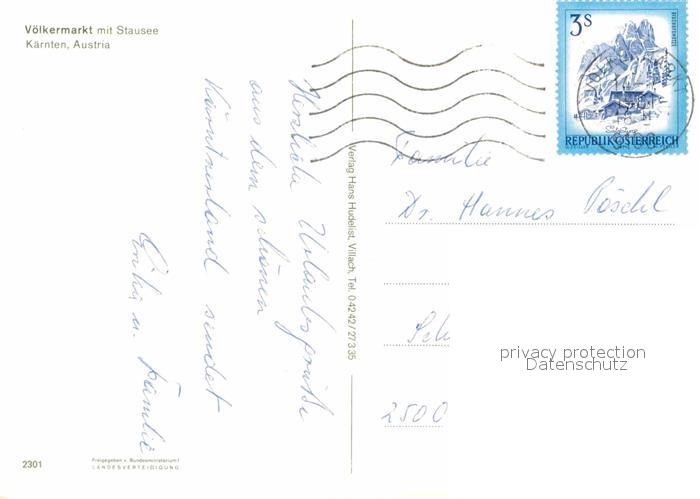 Völkermarkt mit Stausee
Kärnten, Austria
Herzliche Urlaubsgrüße
aus dem schönen
Kärntnerland sendet
u. Familie
2301
Freigegeben v. Bundesministerium f.
LANDESVERTEIDIGUNG
Verlag Hans Hudelist, Villach, Tel. 04242/27335
3S
REPUBLIK ÖSTERREICH
Familie
Dr. Hannes Pöschl
Sch
2500
privacy protection
Datenschutz